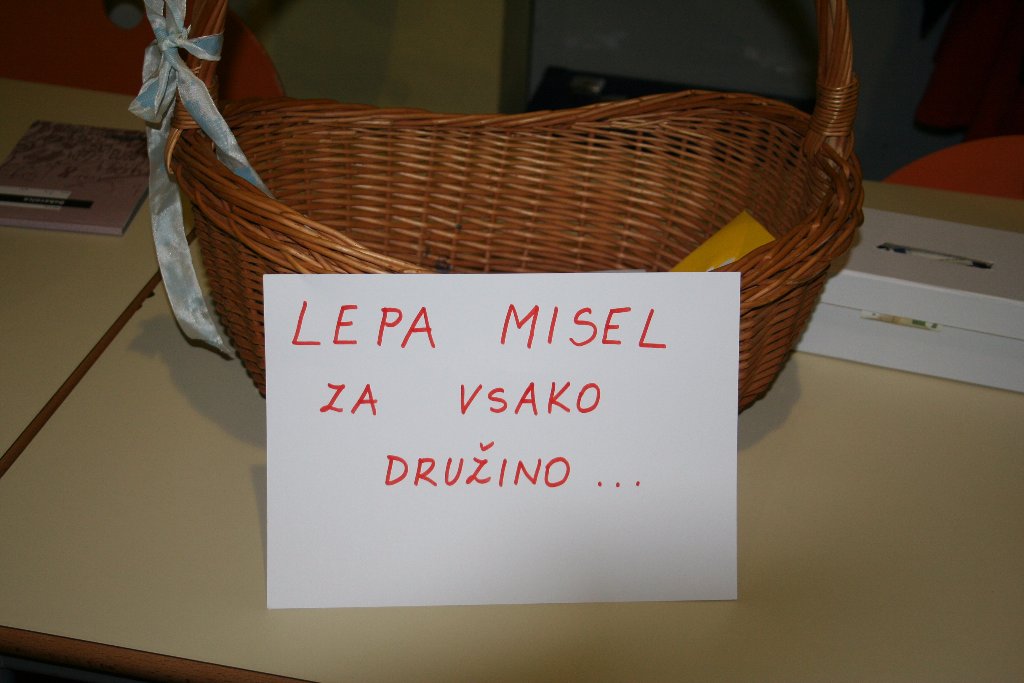 LEPA MISEL
ZA VSAKO
DRUŽINO ...